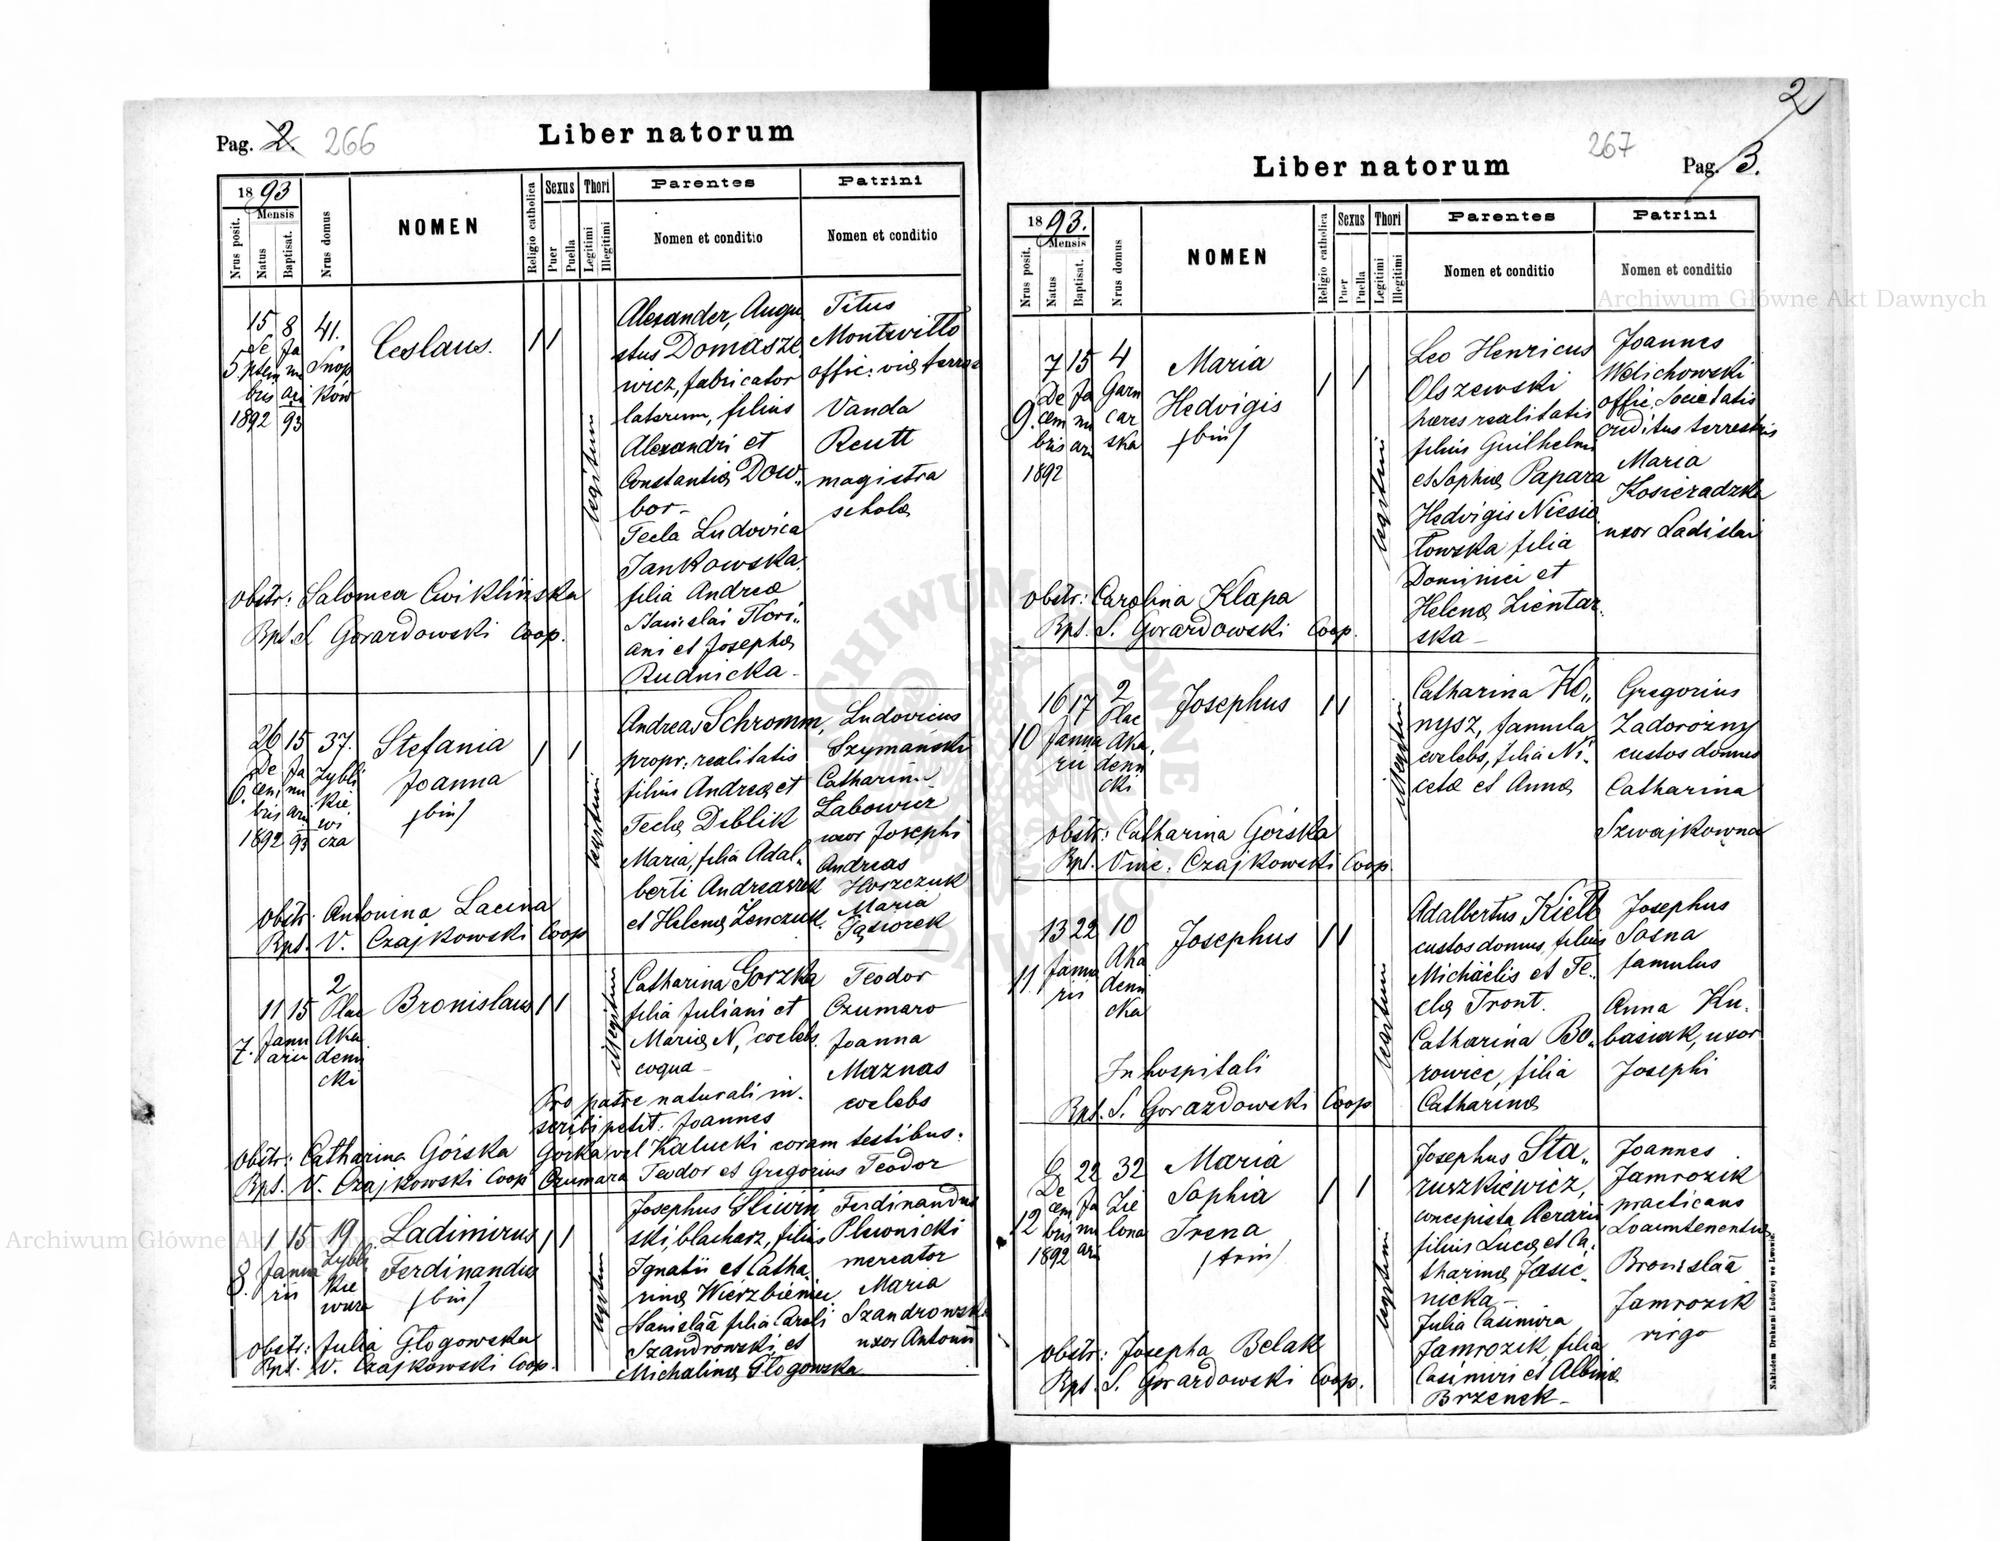 Pag. 2. 266
Liber natorum
1893
Nrus posit.
Mensis
Natus
Baptisat.
Nrus domus
NOMEN
Religio catholica
Sexus
Puer
Puella
Thori
Legitimi
Illegitimi
Parentes
Nomen et conditio
Patrini
Nomen et conditio
5.
15 Septembris 1892
8 Januari 93
41. Snopków
Ceslaus.
legitimi
Alexander, Augu
stus Domasze
wicz, fabricator
laterum, filius
Alexandri et
Constantiæ Dow„
bor-
Tecla Ludovica
Jankowska,
filia Andreæ
Stanislai Flori„
ani et Josephæ
Rudnicka -
Titus
Montwitto
offic: viæ ferrae
Vanda
Reutt
magistra
scholæ
obstr: Salomea Cwiklińska
Bpt. S. Gorardowski Coop.
6.
26 Decembris 1892
15 Januari 93
37. Zyblikiewicza
Stefania
Joanna
/bin/
legitimi
Andreas Schromm,
propr. realitatis
filius Andreæ et
Teclæ Diblik
Maria, filia Adal„
berti Andreaszek
et Helenæ Zenczuk.
Ludovicus
Szymański
Catharina
Labowicz
uxor Josephi
Andreas
Hoszczuk
Maria
Gąsiorek
obstr. Antonina Lacina
Bpt. V. Czajkowski Coop
7.
11 Januarii
15
2 Plac Akademicki
Bronislaus
illegitim
Catharina Gorzka
filia Juliani et
Mariæ N, cœlebs.
coqua -
Teodor
Czumaro
Joanna
Maznas
cœlebs
Pro patre naturali in-
scribi petit: Joannes
Gorka vel Kalucki coram testibus.
Czumara Teodor et Gregorius Teodor
obstr: Catharina Górska
Bpt. V. Czajkowski Coop
8.
1 Januarii
15
19
Ladimirus
Ferdinandus
/bin/
legitimi
Josephus Sliwin
ski, blacharz, filius
Ignatii et Catha„
rinæ Wierzbieniec
Stanislaa filia Caroli
Szandrowski et
Michalinæ Głogowska
Ferdinandus
Plewnicki
mercator
Maria
Szandrowska
uxor Antonii
obstr: Julia Głogowska
Bpt. V. Czajkowski Coop.
2
267
Liber natorum
Pag. 3.
1893.
Nrus posit.
Mensis
Natus
Baptisat.
Nrus domus
NOMEN
Religio catholica
Sexus
Puer
Puella
Thori
Legitimi
Illegitimi
Parentes
Nomen et conditio
Patrini
Nomen et conditio
9.
7 Decembris 1892
15 Januari
4 Garncarska
Maria
Hedvigis
/bin/
legitimi
Leo Henricus
Olszewski
hæres realitatis
filius Guilhelmi
et Sophiæ Papara
Hedvigis Niesio
łowska filia
Dominici et
Helenæ Zientar„
ska -
Joannes
Welichowski
offic. Societatis
creditus terrestris
Maria
Kosieradzka
uxor Ladislai
obstr: Carolina Klapa
Bpt. S. Gorardowski Coop.
10
16 Januarii
17
2 Plac Akademicki
Josephus
illegitimi
Catharina Ho„
nysz, famula
cœlebs, filia Ni„
cetæ et Annæ
Gregorius
Zadorożny
custos domus
Catharina
Szwajkówna
obstr: Catharina Górska
Bpt. Vinc. Czajkowski Coop.
11.
13 Januarii
22
10 Akademicka
Josephus
legitimi
Adalbertus Kiełb
custos domus, filius
Michaelis et Te„
clæ Tront.
Catharina Bo„
rowiec, filia
Catharinæ
Josephus
Sosna
famulus
Anna Ku„
basiak, uxor
Josephi
In hospitali
Bpt. S. Gorazdowski Coop
12
6 Decembris 1892
22 Januari
32 Zielona
Maria
Sophia
Irena
/trin/
legitimi
Josephus Sta„
ruszkiewicz,
concepista Aerarii
filius Lucæ et Ca„
tharinæ Jasie„
nicka -
Julia Casimira
Jamrozik, filia
Casimiri et Albinæ
Brzenek -
Joannes
Jamrozik
practicans
Locumtenentiæ
Bronislaa
Jamrozik
virgo
obstr: Josepha Belak
Bpt. S. Gorardowski Coop.
Nakładem Drukarni Ludowej we Lwowie.
Archiwum Główne Akt Dawnych
Archiwum Główne Akt Dawnych